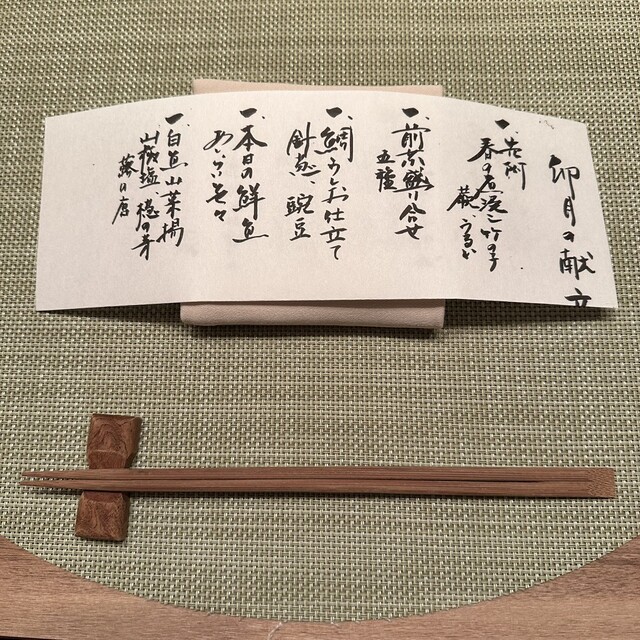 卯月の献立
一、先附
春の煮浸し 竹の子
蕨、うるい
一、前菜盛り合せ
五種
一、鯛うしお仕立て
針葱、豌豆
一、本日の鮮魚
あしらい色々
一、白魚山菜揚
山椒塩、穂の芽
蕗の唐